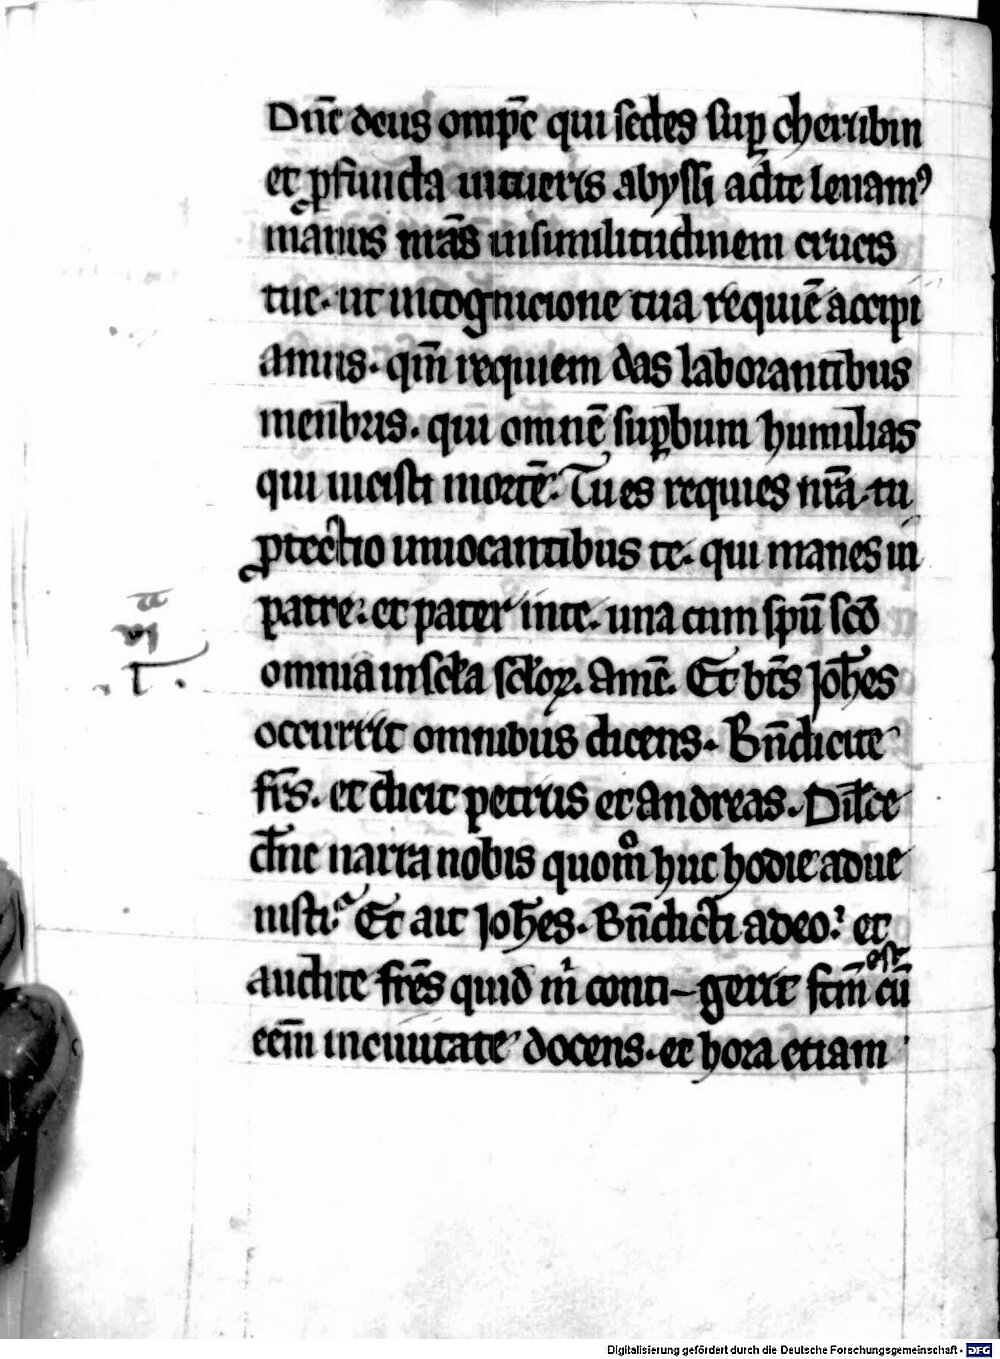 Dn̄e deus omīpc̄ qui sedes suꝑ cherubin
et ꝓfunda intueris abyssi ad te leuamꝰ
manus nr̄as in similitudinem crucis
tue. ut in cognicione tua requiē accipi
amus. qm̄ requiem das laborantibus
menbris. qui omnē suꝑbum humilias
qui uicisti mortē. Tu es requies nr̄a. tu
ꝓtectio inuocantibus te. qui manes in
patre. et pater in te. una cum spū sc̄o
omnia in scl̄a scl̄oꝝ. Amē. Et bt̄s Joh̄es
occurrit omnibus dicens. Bn̄dicite
fr̄s. et dicit petrus et Andreas. Dil̄ce
dn̄e narra nobis quomͦ huc hodie adue
nisti. Et ait Joh̄es. Bn̄dicti a deo. et
audite fr̄es quid m̄ conti-gerit
est
eēm in ciuitate docens. et hora etiam
Digitalisierung gefördert durch die Deutsche Forschungsgemeinschaft - DFG